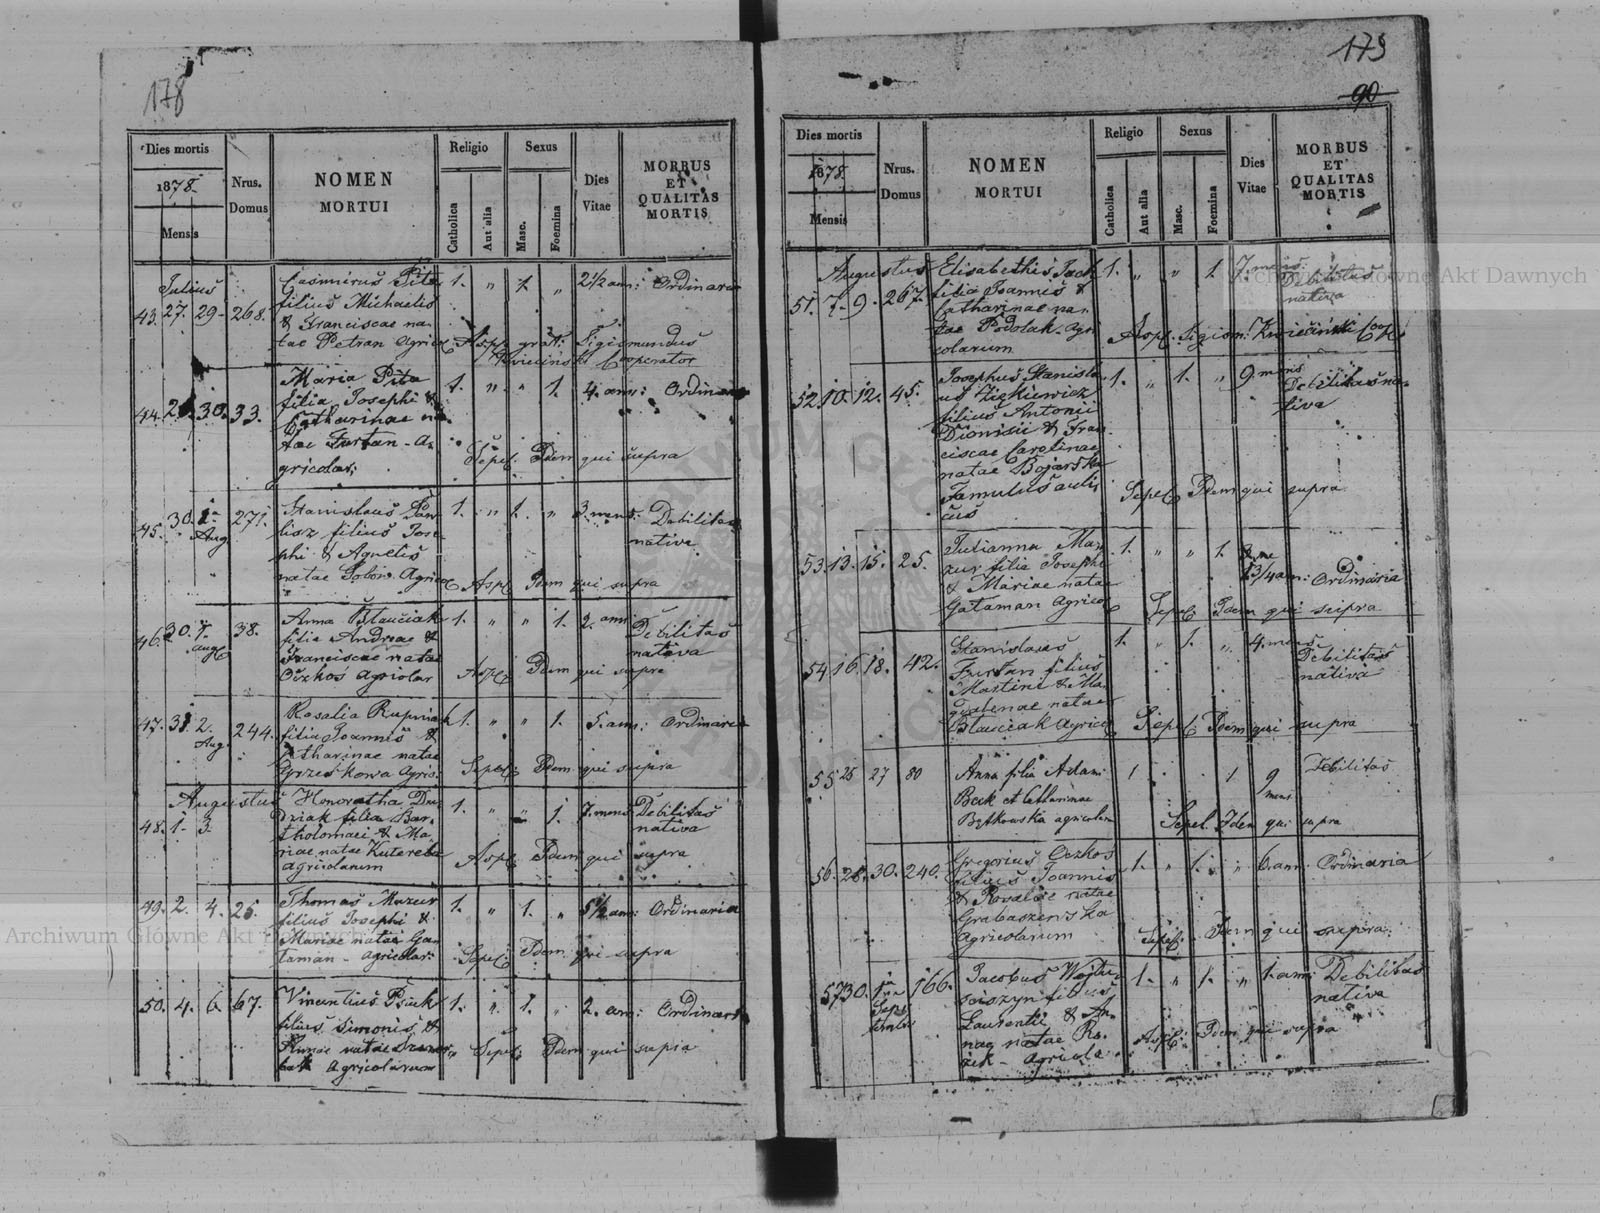 178
Dies mortis
1878
Mensis
Nrus. Domus
NOMEN
MORTUI
Religio
Catholica
Aut alia
Sexus
Masc.
Foemina
Dies Vitae
MORBUS
ET
QUALITAS
MORTIS
Julius
43. 27. 29. 268. Casimirus Pita 1. „ 1. „ 2 1/2 ann: Ordinaria
filius Michaelis
& Franciscae na-
tae Petran Agricol
Asp. grat: Sigismundus
Kwieciński Cooperator
44. 30. 33. Maria Pita 1. „ „ 1. 4. ann: Ordinaria
filia Josephi &
Catharinae na
tae Furtan - A-
gricolar:
Sepel. Idem qui supra
45. 30. 1a Aug. 271. Stanislaus 1. „ 1. „ 3. mens: Debilitas
filius Jose-
nativa
phi & Agnetis
natae Agricol Asp. Idem qui supra
46. 30. Aug 38. Anna Btauciak 1. „ „ 1. 2. ann Debilitas
filia Andreae &
nativa
Franciscae natae
Oczkos Agricolar Asp. Idem qui supra
47. 31 2. Aug. 244. Rosalia Rupniak 1. „ „ 1. 5. ann: Ordinaria
filia Joannis &
Catharinae natae
Agric. Sepel: Idem qui supra
Augustus
48. 1. 3. Honoratha 1. „ „ 1. 7. mens Debilitas
filia Bar-
nativa
tholomaei & Ma
riae natae Kutereba Asp. Idem qui supra
Agricolarum
49. 2. 4. 25. Thomas Mazur 1. „ 1. „ 5 1/2 ann: Ordinaria
filius Josephi &
Mariae natae Ga-
taman - agricolar: Sepel: Idem qui supra
50. 4. 6. 67. Vincentius 1. „ 1. „ 2. ann: Ordinaria
filius Simonis &
natae Sepel: Idem qui supra
Agricolarum
179
90
Dies mortis
1878
Mensis
Nrus. Domus
NOMEN
MORTUI
Religio
Catholica
Aut alia
Sexus
Masc.
Foemina
Dies Vitae
MORBUS
ET
QUALITAS
MORTIS
Augustus
51. 7. 9. 267. Elisabethis 1. „ „ 1. 7. mens Debilitas
filia Joannis &
nativa
Catharinae na-
tae Podolak. Agri
colarum Asp. Sigism. Kwieciński Coop
52. 10. 12. 45. Josephus Stanisla 1. „ 1. „ 9. mens Debilitas na-
us Zigkiewicz
tiva
filius Antonii
Dionisii & Fran
ciscae Carolinae
natae Bojarska
Famulus aulis
Sepel Idem qui supra
cus
53. 13. 15. 25. Julianna Ma- 1. „ „ 1. 3/4 ann: Ordinaria
zur filia Josephi
& Mariae natae
Gataman Agricol Sepel Idem qui supra
54 16. 18. 42. Stanislaus 1. „ 1. „ 4. mens Debilitas
Furtan filius
nativa
Martini & Ma
gdalenae natae
Btauciak Agricol Sepel Idem qui supra
55 26 27 80 Anna filia Adami 1 1 9 mens Debilitas
Bak et Catharinae
Bętkowska agricolar Sepel. Idem qui supra
56. 28. 30. 240. Gregorius Oczkos 1. „ 1. „ 6. ann Ordinaria
filius Joannis
& Rosaliae natae
Grabaszenska
Agricolarum Sepel: Idem qui supra.
57 30. 1a Septembr 166. Jacobus Wojtu- 1. „ 1. „ 1. ann: Debilitas
sciszyn filius
nativa
Laurentii & An-
nae natae
Agricola Asp: Idem qui supra
Archiwum Główne Akt Dawnych
Archiwum Główne Akt Dawnych